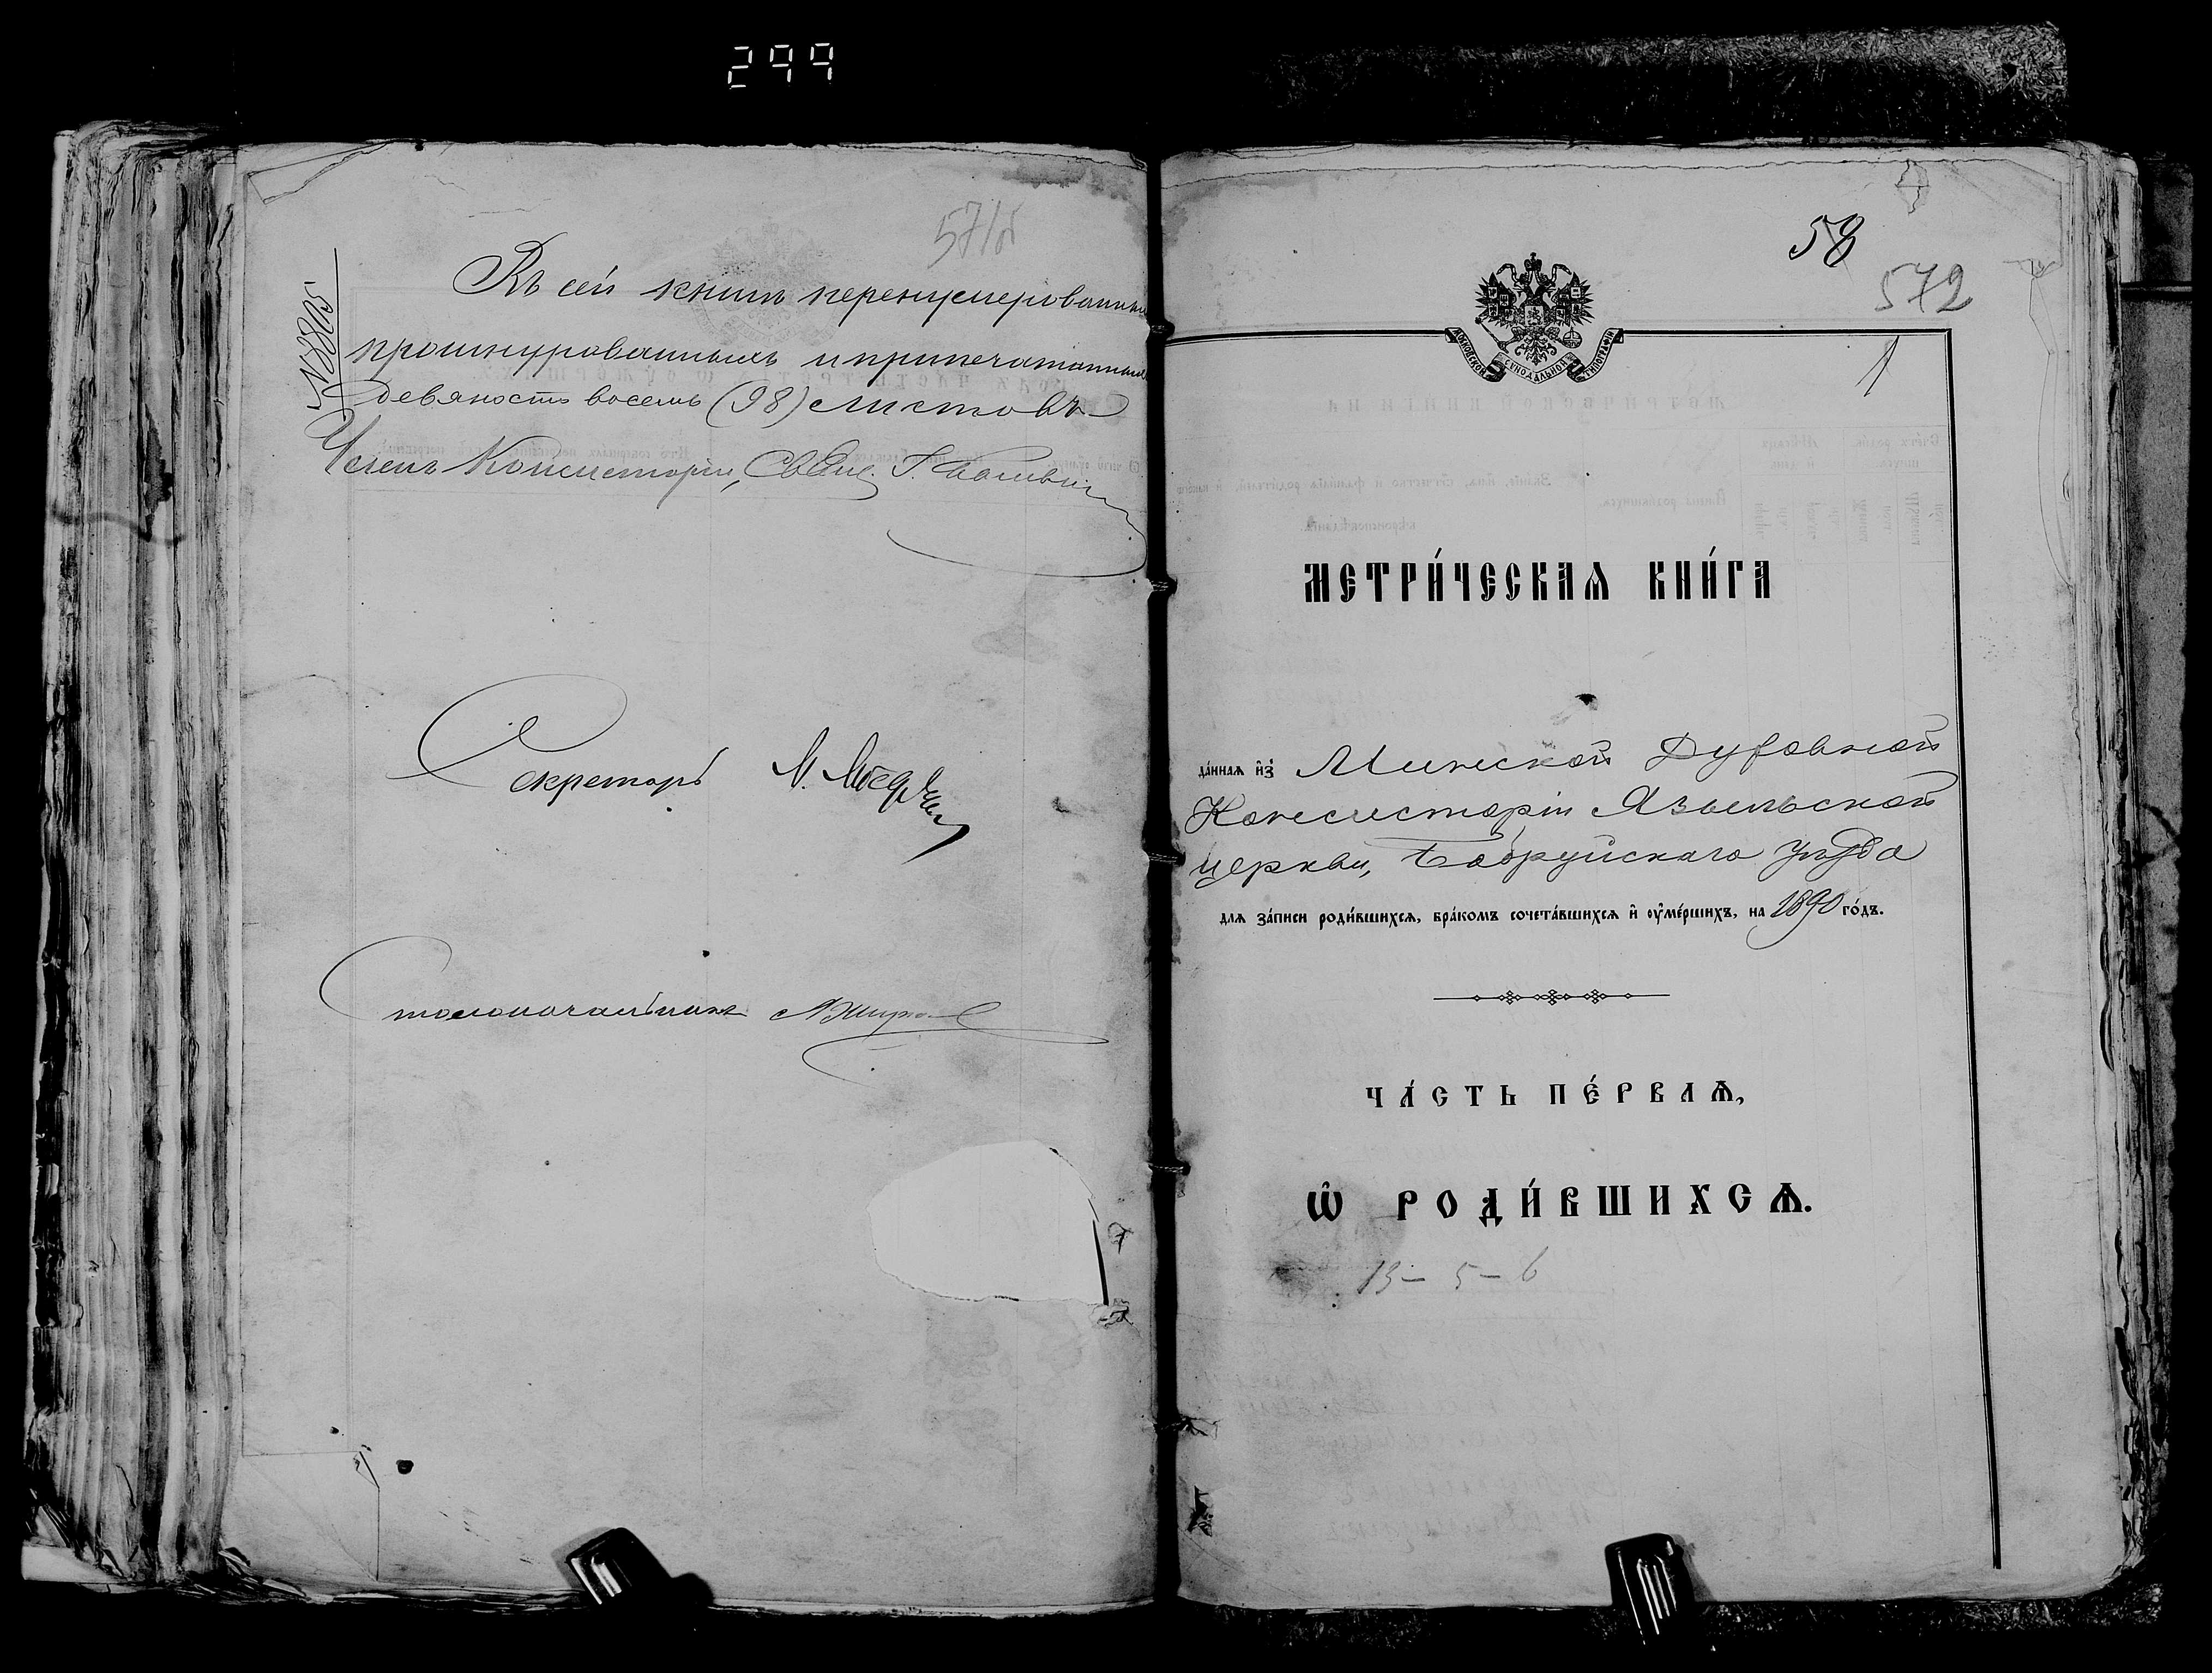 299
571б
№ 8805
Въ сей книгѣ перенумерованныхъ
прошнурованныхъ и припечатанныхъ
девяносто восемь (98) листовъ
Членъ Консисторіи, Свящ.
Секретарь
Столоначальникъ
58
572
1
МОСКОВСКОЙ СѴНОДАЛЬНОЙ ТИПОГРАФІИ
МЕТРИ́ЧЕСКАѦ КНИ́ГА
да́ннаѧ и҆зъ Минской Духовной
Консисторіи Языльской
церкви, Бобруйскаго уѣзда
длѧ за́писи роди́вшихсѧ, бра́комъ сочета́вшихсѧ и҆ оу҆ме́ршихъ, на 1890 го́дъ.
ЧА́СТЬ ПЕ́РВАѦ,
Ѡ҆ РОДИ́ВШИХСѦ.
13 – 5 – 6